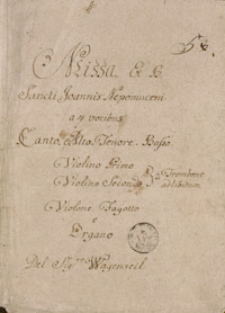 58.
Missa. Ex B
Sancti Joannis Nepomuceni
a 4 vocibus
Canto. Alto. Tenore. Basso.
Violino Primo
Violino Secondo
Trombone
ad libitum
Violone. Fagotto
e
Organo
Del Sig:re Wagenseil